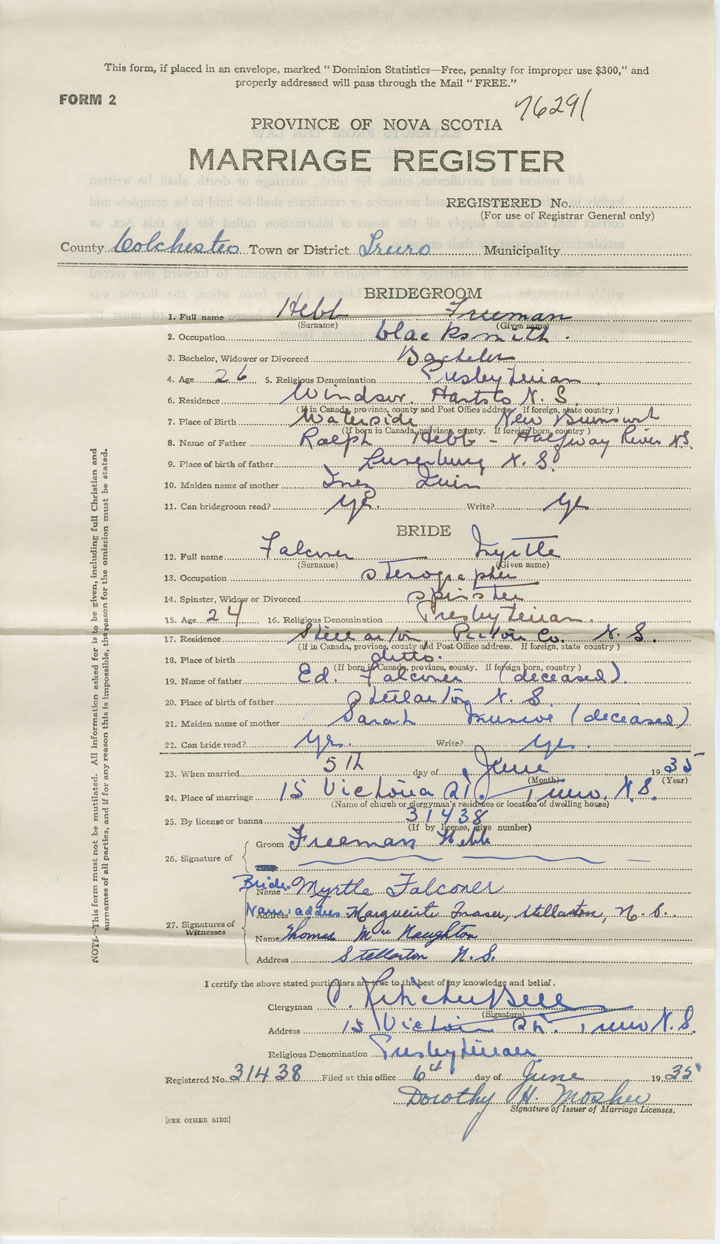 This form, if placed in an envelope, marked "Dominion Statistics—Free, penalty for improper use $300," and
properly addressed will pass through the Mail "FREE."
FORM 2
76291
PROVINCE OF NOVA SCOTIA
MARRIAGE REGISTER
REGISTERED No.
(For use of Registrar General only)
County Colchester Town or District Truro Municipality
BRIDEGROOM
1. Full name Hebb Freeman
(Surname) (Given name)
2. Occupation blacksmith.
3. Bachelor, Widower or Divorced Bachelor
4. Age 26 5. Religious Denomination Presbyterian.
6. Residence Windsor, Hants N.S.
(If in Canada, province, county and Post Office address. If foreign, state country)
7. Place of Birth Waterside New Brunswick
(If born in Canada, province, county. If foreign born, country)
8. Name of Father Ralph Hebb - Halfway River N.S.
9. Place of birth of father Lunenburg N.S.
10. Maiden name of mother Inez
11. Can bridegroom read? Yes. Write? Yes
BRIDE
12. Full name Falconer Myrtle
(Surname) (Given name)
13. Occupation stenographer
14. Spinster, Widow or Divorced spinster
15. Age 24 16. Religious Denomination Presbyterian.
17. Residence Stellarton, Pictou Co. N.S.
(If in Canada, province, county and Post Office address. If foreign, state country)
18. Place of birth ditto.
(If born in Canada, province, county. If foreign born, country)
19. Name of father Ed. Falconer (deceased).
20. Place of birth of father Stellarton N.S.
21. Maiden name of mother Sarah Munroe (deceased)
22. Can bride read? Yes. Write? Yes.
23. When married 5th day of June 1935
(Month) (Year)
24. Place of marriage 15 Victoria St. Truro N.S.
(Name of church or clergyman's residence or location of dwelling house)
25. By license or banns 31438
(If by license, give number)
26. Signature of
Groom Freeman Hebb
Bride
Name Myrtle Falconer
27. Signatures of Witnesses
Name & address Marguerite Fraser, Stellarton, N.S.
Name Thomas MacNaughton
Address Stellarton N.S.
I certify the above stated particulars are true to the best of my knowledge and belief.
Clergyman
(Signature)
Address 15 Victoria St. Truro N.S.
Religious Denomination Presbyterian
Registered No. 31438 Filed at this office 6th day of June 1935
Dorothy H. Mosher
Signature of Issuer of Marriage Licenses.
[SEE OTHER SIDE]
NOTE—This form must not be mutilated. All information asked for is to be given, including full Christian and
surnames of all parties, and if for any reason this is impossible, the reason for the omission must be stated.